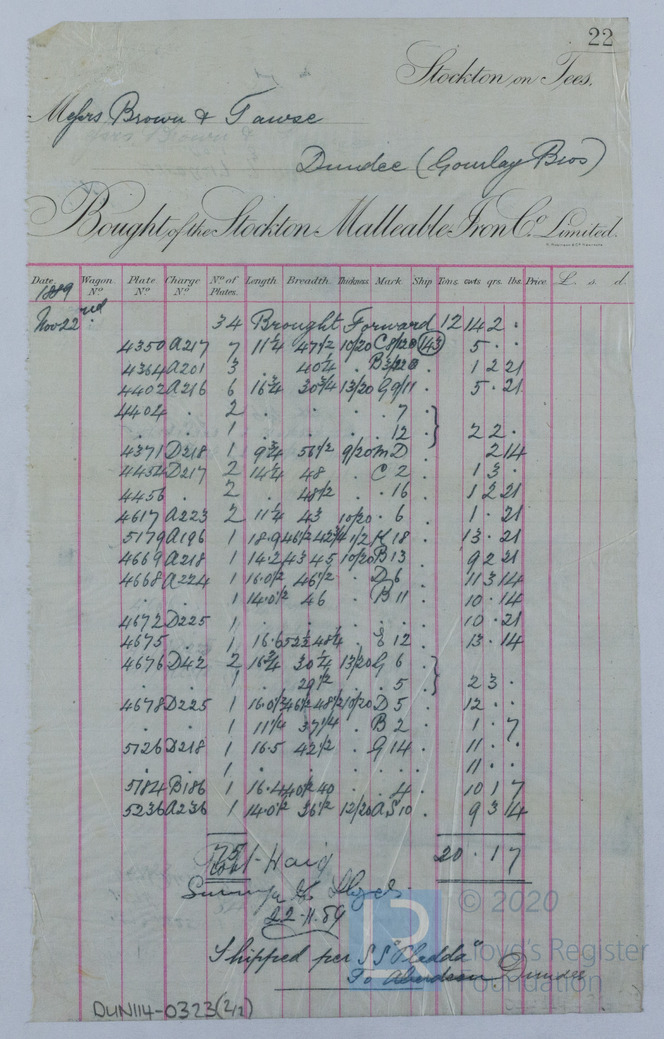 22
Stockton on Tees,
Messrs Brown & Fawse
Dundee (Gourlay Bros)
Bought of the Stockton Malleable Iron Co. Limited.
Date Wagon No Plate No Charge No No of Plates. Length Breadth Thickness Mark Ship Tons cwts qrs. lbs. Price £ s d.
1889
Nov 22nd 34 Brought Forward 12 14 2 .
4350 A217 7 11¼ 47½ 10/20 C 8/20 (143) 5 . .
4364 A201 3 . 40¼ . B 1 2 21
4402 A216 6 16¾ 30¾ 13/20 G 9/11 . 5 . 21
4404 . 2 . . . . 7 .
. . 1 . . . . 12 . } 2 2 .
4371 D218 1 9¾ 56½ 9/20 m D . 2 14
4454 D217 2 14¼ 48 . C 2 . 1 3 .
4456 . 2 . 48½ . . 16 . 1 2 21
4617 A223 2 11¼ 43 10/20 . 6 . 1 . 21
5179 A196 1 18.9 46½ 42¾ 1/2 K 18 . 13 . 21
4669 A218 1 14.2 43 45 10/20 B 13 . 9 2 21
4668 A224 1 16.0½ 46½ . D 6 . 11 3 14
. . 1 14.0½ 46 . B 11 . 10 . 14
4672 D225 1 . . . . . . 10 . 21
4675 . 1 16.6 52½ 48¼ . E 12 . 13 . 14
4676 D42 2 16¾ 30¼ 13/20 G 6 .
. . 1 . 29½ . . 5 . } 2 3 .
4678 D225 1 16.0¾ 46½ 48½ 10/20 D 5 . 12 . .
. . 1 11¼ 37¼ . B 2 . 1 . 7
5726 D218 1 16.5 42½ . G 14 . 11 . .
. . 1 . . . . . . 11 . .
5784 B186 1 16.4 40½ 40 . . 4 . 10 1 7
5236 A236 1 14.0½ 36½ 12/20 A S 10 . 9 3 14
75 20 . 1 7
Haig
Surveyor Lloyds
22-11-89
Shipped per S.S "Pladda"
To Aberdeen Dundee
DUN114-0323(2/2)
© 2020
Lloyd's Register
Foundation